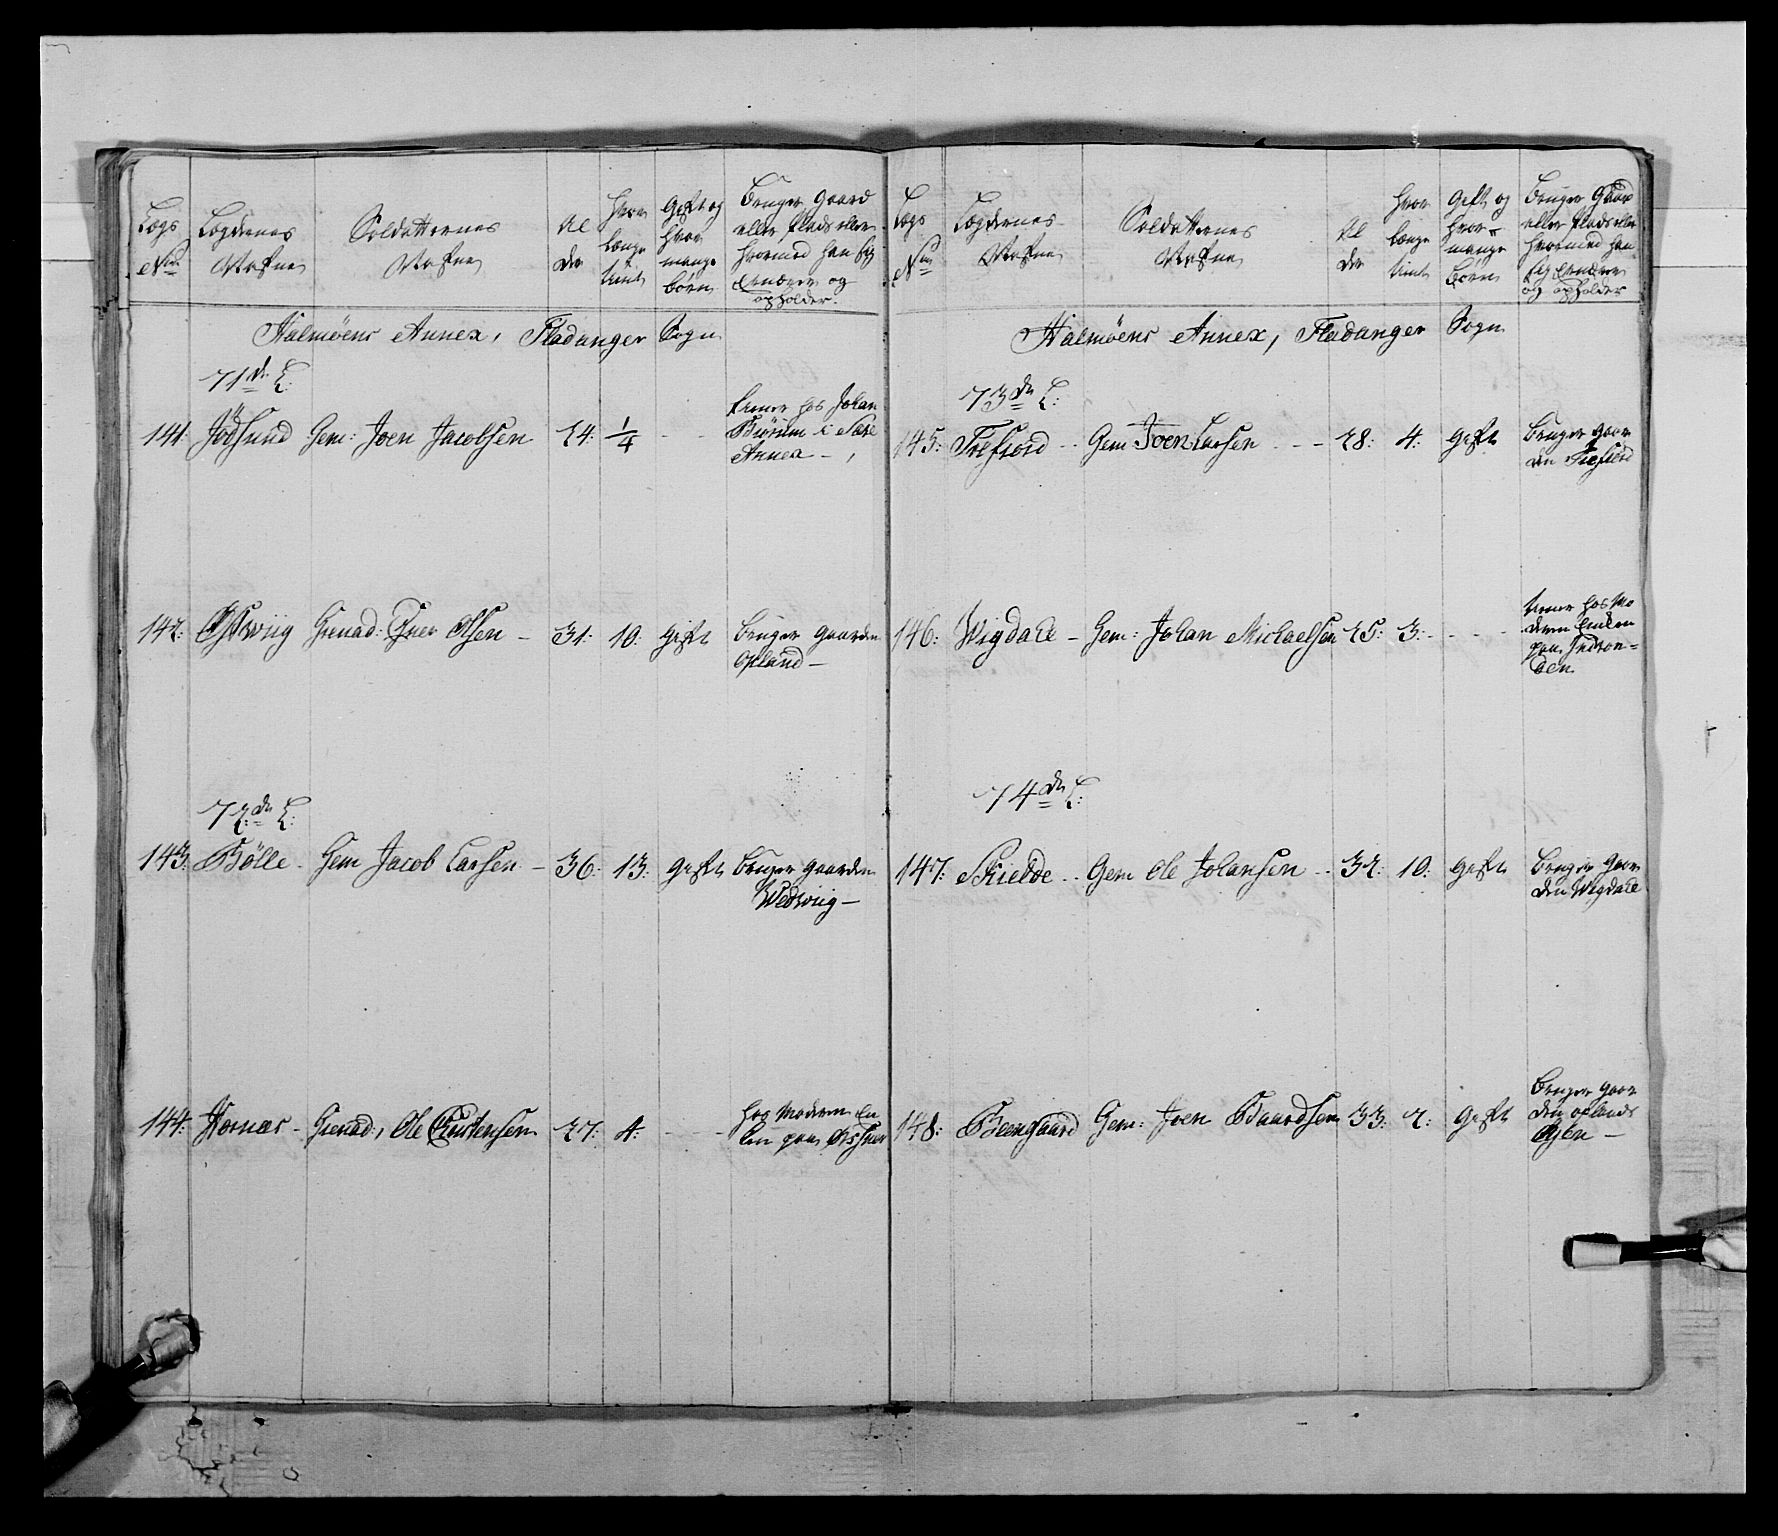 Lægs No
Lægdernes Nafne
Soldatternes Nafne
Al der
Hvor længe tient
Gift og hvor mange børn
Bruger Gaard eller Plads eller hvormed han sig ernærer og opholder.
Halmøens Annex, Fladanger Sogn
71de L:
141. Jøssund Gem: Joen Jacobsen 24: 1/4 - - tiener hos Johan
Biørum i Sæe
Annex -
142: Gem Grenad: Olsen - 31: 10: Gift bruger gaarden
Opland -
72de L:
143: Bølle - Gem Jacob Larsen - 36: 13: gift bruger gaarden
Wedviig -
144: Hornes - Grenad: Ole Christensen 27: 4: - - hos Moderen En
ken paa
Lægs No
Lægdernes Nafne
Soldatternes Nafne
Al der
Hvor længe tient
Gift og hvor mange børn
Bruger Gaard eller Plads eller hvormed han sig ernærer og opholder
Halmøens Annex, Fladanger Sogn
73de L:
145: Trefiord - - Gem Joen Larsen - - - 28: 4: gift bruger gaar
den Trefiord
146: Wigdale - Gem: Johan Michaelsen 25: 3: - - - tiener hos Mo
deren Enken
paa
74de L:
147: Skielde - - Gem Ole Johansen - - 32: 10: gift bruger gaar
den Wigdale
148: Gem: Joen 33: 2: gift bruger gaar
den